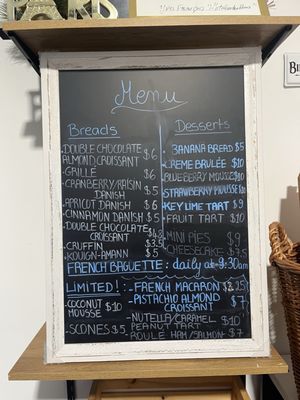 Menu
Breads
DOUBLE CHOCOLATE
ALMOND CROISSANT $6
GRILLÉ $6
CRANBERRY/RAISIN
DANISH $5
APRICOT DANISH $6
CINNAMON DANISH $5
DOUBLE CHOCOLATE
CROISSANT
CRUFFIN
KOUIGN-AMANN $5
Desserts
BANANA BREAD $5
CREME BRULÉE $10
BLUEBERRY MOUSSE $10
STRAWBERRY MOUSSE $10
KEY LIME TART $9
FRUIT TART $10
MINI PIES $9
CHEESECAKE
FRENCH BAGUETTE: daily at 9:30am
LIMITED!:
COCONUT $10
MOUSSE
-SCONES $5
-FRENCH MACARON $2.25
-PISTACHIO ALMOND
CROISSANT $7
-NUTELLA/CARAMEL
PEANUT TART $10
ROULE HAM/SALMON $7